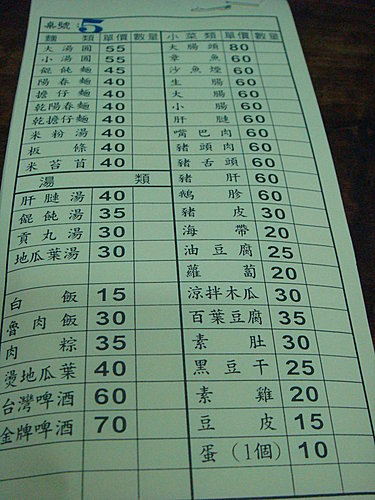 桌號：5
麵類 單價 數量
大湯圓 55
小湯圓 55
餛飩麵 45
陽春麵 40
擔仔麵 40
乾陽春麵 40
乾擔仔麵 40
米粉湯 40
板條 40
米苔目 40
湯類
肝腱湯 40
餛飩湯 35
貢丸湯 30
地瓜葉湯 30
白飯 15
魯肉飯 30
肉粽 35
燙地瓜葉 40
台灣啤酒 60
金牌啤酒 70
小菜類 單價 數量
大腸頭 80
章魚 60
沙魚煙 60
生腸 60
大腸 60
小腸 60
肝腱 60
嘴巴肉 60
豬頭肉 60
豬舌頭 60
豬肝 60
鵝胗 60
豬皮 30
海帶 20
油豆腐 25
蘿蔔 20
涼拌木瓜 30
百葉豆腐 35
素肚 30
黑豆干 25
素雞 20
豆皮 15
蛋(1個) 10